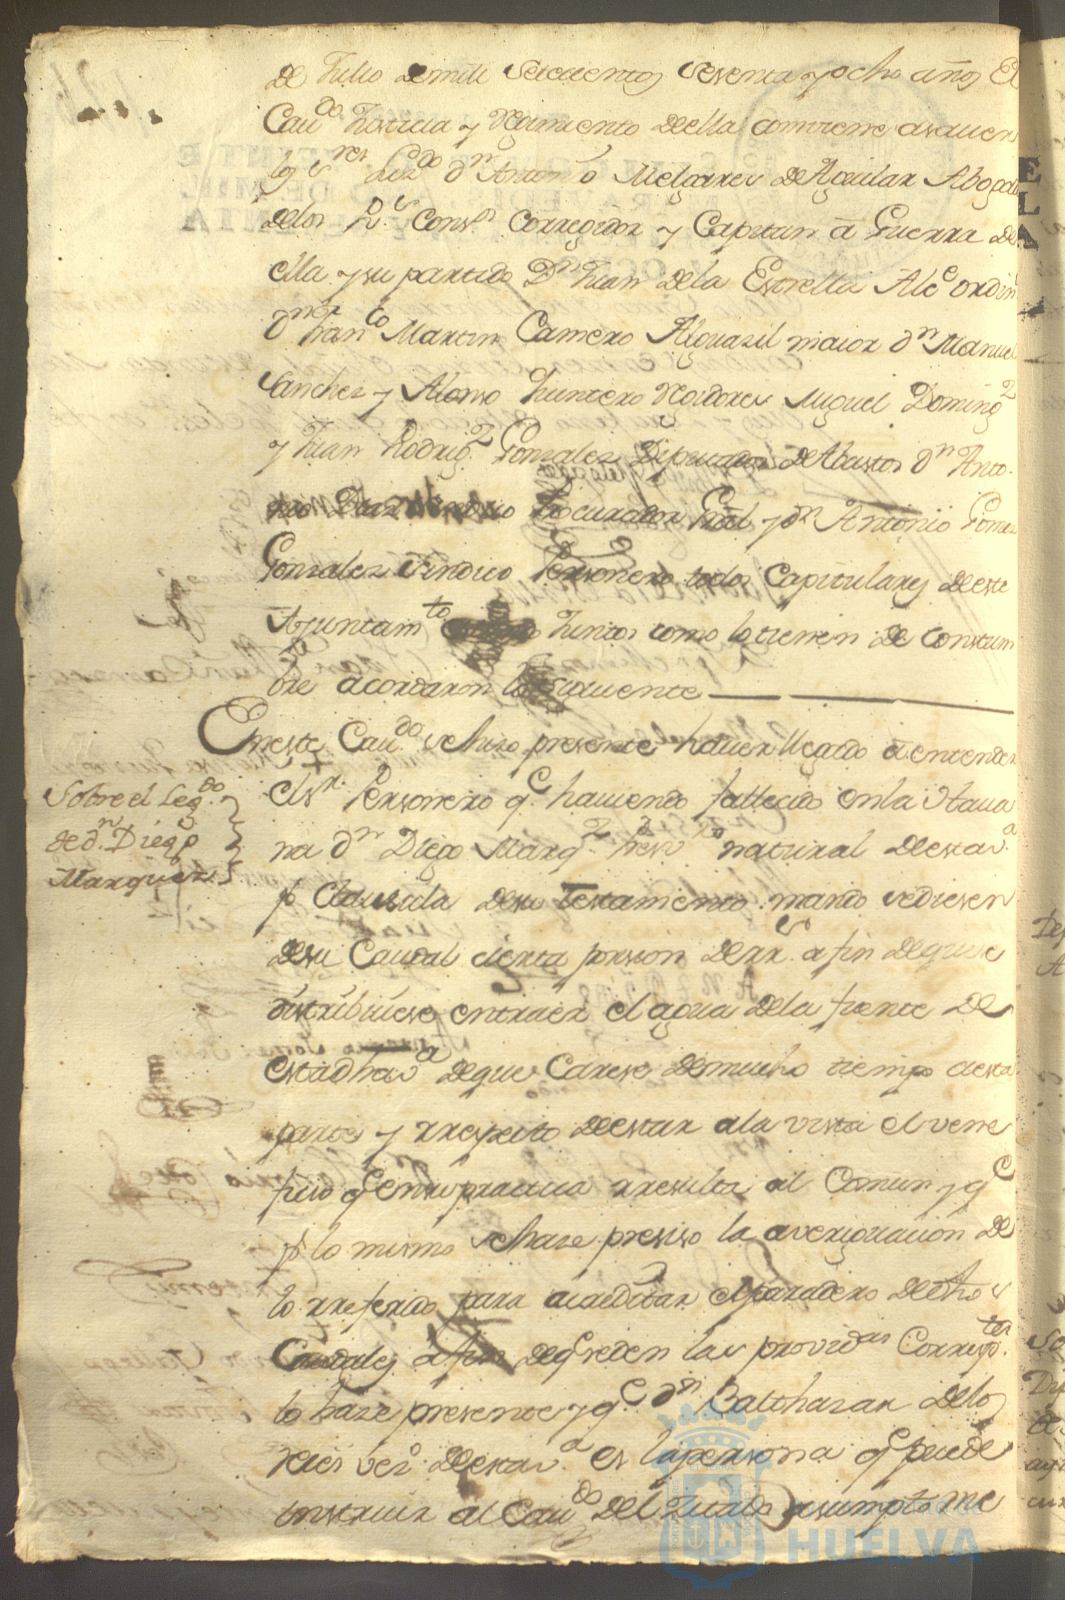 de Julio de mill Setecientos Sesenta y ocho años El
Cau.do Justicia y Regimiento de ella combiene a saver
los S.res Liz.do d.n Antonio Melgarejo de Aguilar Abogado
de los R.s Cons.s Corregidor y Capitan a Guerra de
ella y su partido D.n Juan de la Estrella Alc.e ordin.o
d.n Fran.co Martin Camero Alguasil maior d.n Manuel
Sanchez y Alonso Quintero Rexidores Miguel Doming.z
y Juan Rodrig.z Gonzalez Diputados de Abastos d.n Anto-
nio Diaz Procurador Gral y d.n Antonio Gomez
Gonzalez Sindico Personero todos Capitulares de este
Ayuntam.to Juntos como lo tienen de constum
bre acordaron lo siguiente
En este Cau.do se hizo presente haver llegado a entender
el s.r Personero q.e haviendo fallecido en la Hava
na d.n Diego Marq.z Presv.ro natural de esta v.a
p.r Clausula de su testamento mando se diesen
de su Caudal cierta porsion de rr.s a fin de que se
distribuiese en traer el agua de la fuente de
esta dha v.a de que Carese de mucho tiempo a esta
parte y rrespecto de estar a la vista el vene
fisio q.e en su practica rresulta al Comun y q.e
p.r lo mismo se hase presiso la averiguacion de
lo rreferido para acreditar el paradero de dhos
Caudales a fin de q.e se den las provid.as Corresp.tes
lo hase presente y q.e d.n Balthasar de los
reies vez.o de esta v.a es la persona q.e puede
instruir al Cau.do del asumpto me
Sobre el Leg.do
de d.n Diego
Marquez
HUELVA